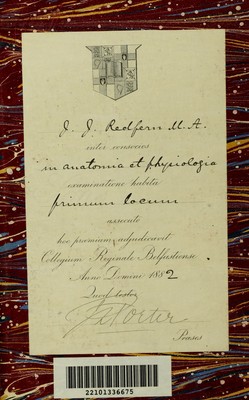 J. J. Redfern M. A.
inter consocios
in anatomia et physiologia
examinatione habita
primum locum
assecuto
hoc præmium adjudicavit
Collegium Reginale Belfastiense.
Anno Domini 1882
Quod testor
Præses
22101336675